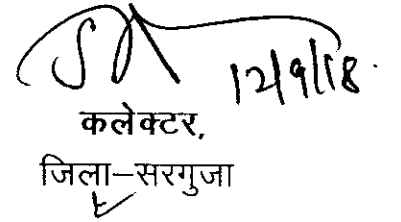 12/9/18.
कलेक्टर,
जिला–सरगुजा